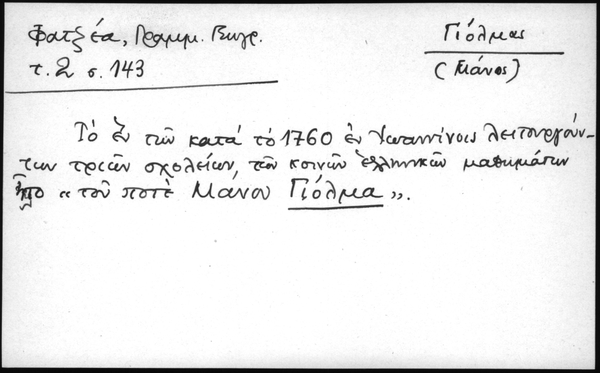 Φατζέα, Γραμμ. Γεωγρ.
τ. 2 σ. 143
Γιόλμας
(Μάνος)
Τὸ ἓν τῶν κατά τὸ 1760 ἐν Ἰωαννίνοις λειτουργούν-
των τριῶν σχολείων, τῶν κοινῶν ἑλληνικῶν μαθημάτων
ἦτο «τοῦ ποτὲ Μάνου Γιόλμα».